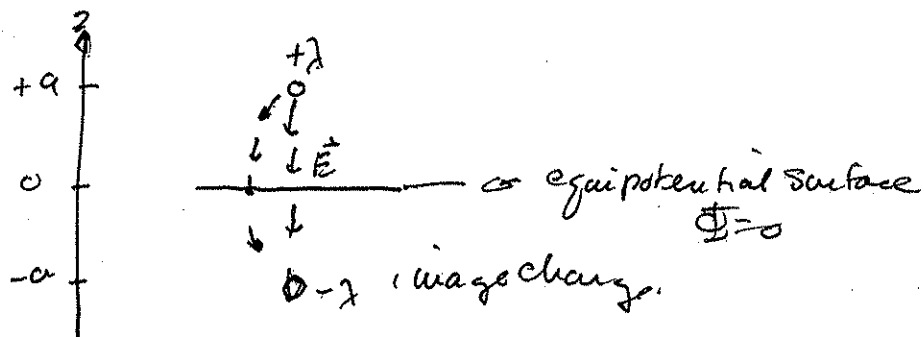 z
+λ
+a
E⃗
0
equipotential surface
Φ=0
-a
-λ image charge.